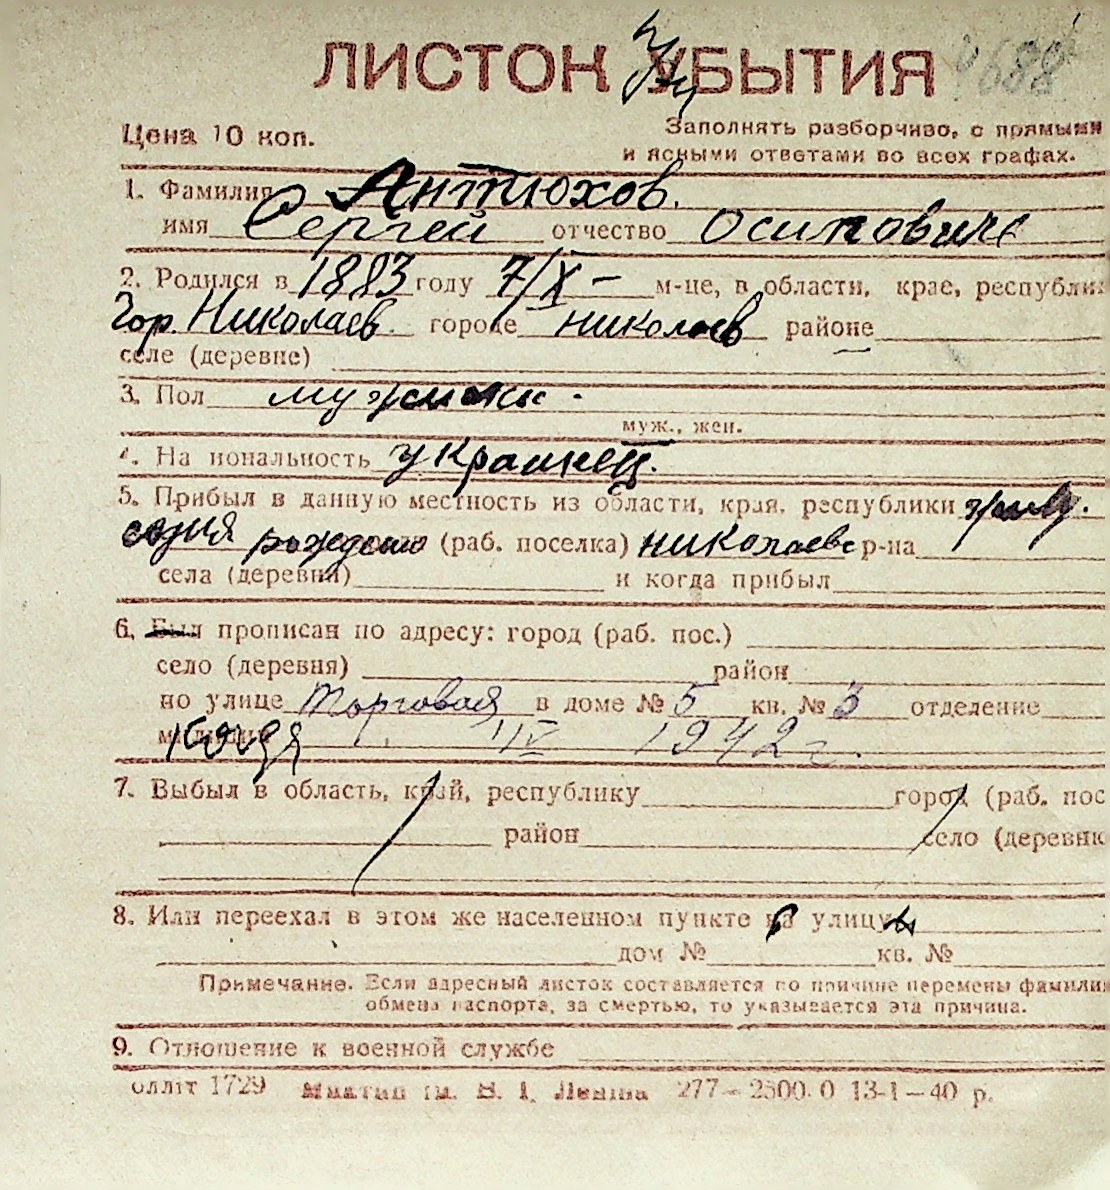 ЛИСТОК УБЫТИЯ
Цена 10 коп.
Заполнять разборчиво, с прямыми
и ясными ответами во всех графах.
1. Фамилия Антюхов.
имя Сергей отчество Осипович
2. Родился в 1883 году 7/X – м-це, в области, крае, республик
Гор. Николаев городе Николаев районе
селе (деревне)
3. Пол мужск.
муж., жен.
4. На иональность украинец.
5. Прибыл в данную местность из области, края, республики
рождения (раб. поселка) Николаеве р-на
села (деревни) и когда прибыл
6. Был прописан по адресу: город (раб. пос.)
село (деревня) район
по улице Торговая в доме № 5 кв. № 3 отделение
милиции IV 1942 г.
7. Выбыл в область, край, республику город (раб. пос
район село (деревн
8. Или переехал в этом же населенном пункте на улицу
дом № кв. №
Примечание. Если адресный листок составляется по причине перемены фамилии
обмена паспорта, за смертью, то указывается эта причина.
9. Отношение к военной службе
олліт 1729 им. В. І. Леніна 277–2500.0 13-1–40 р.